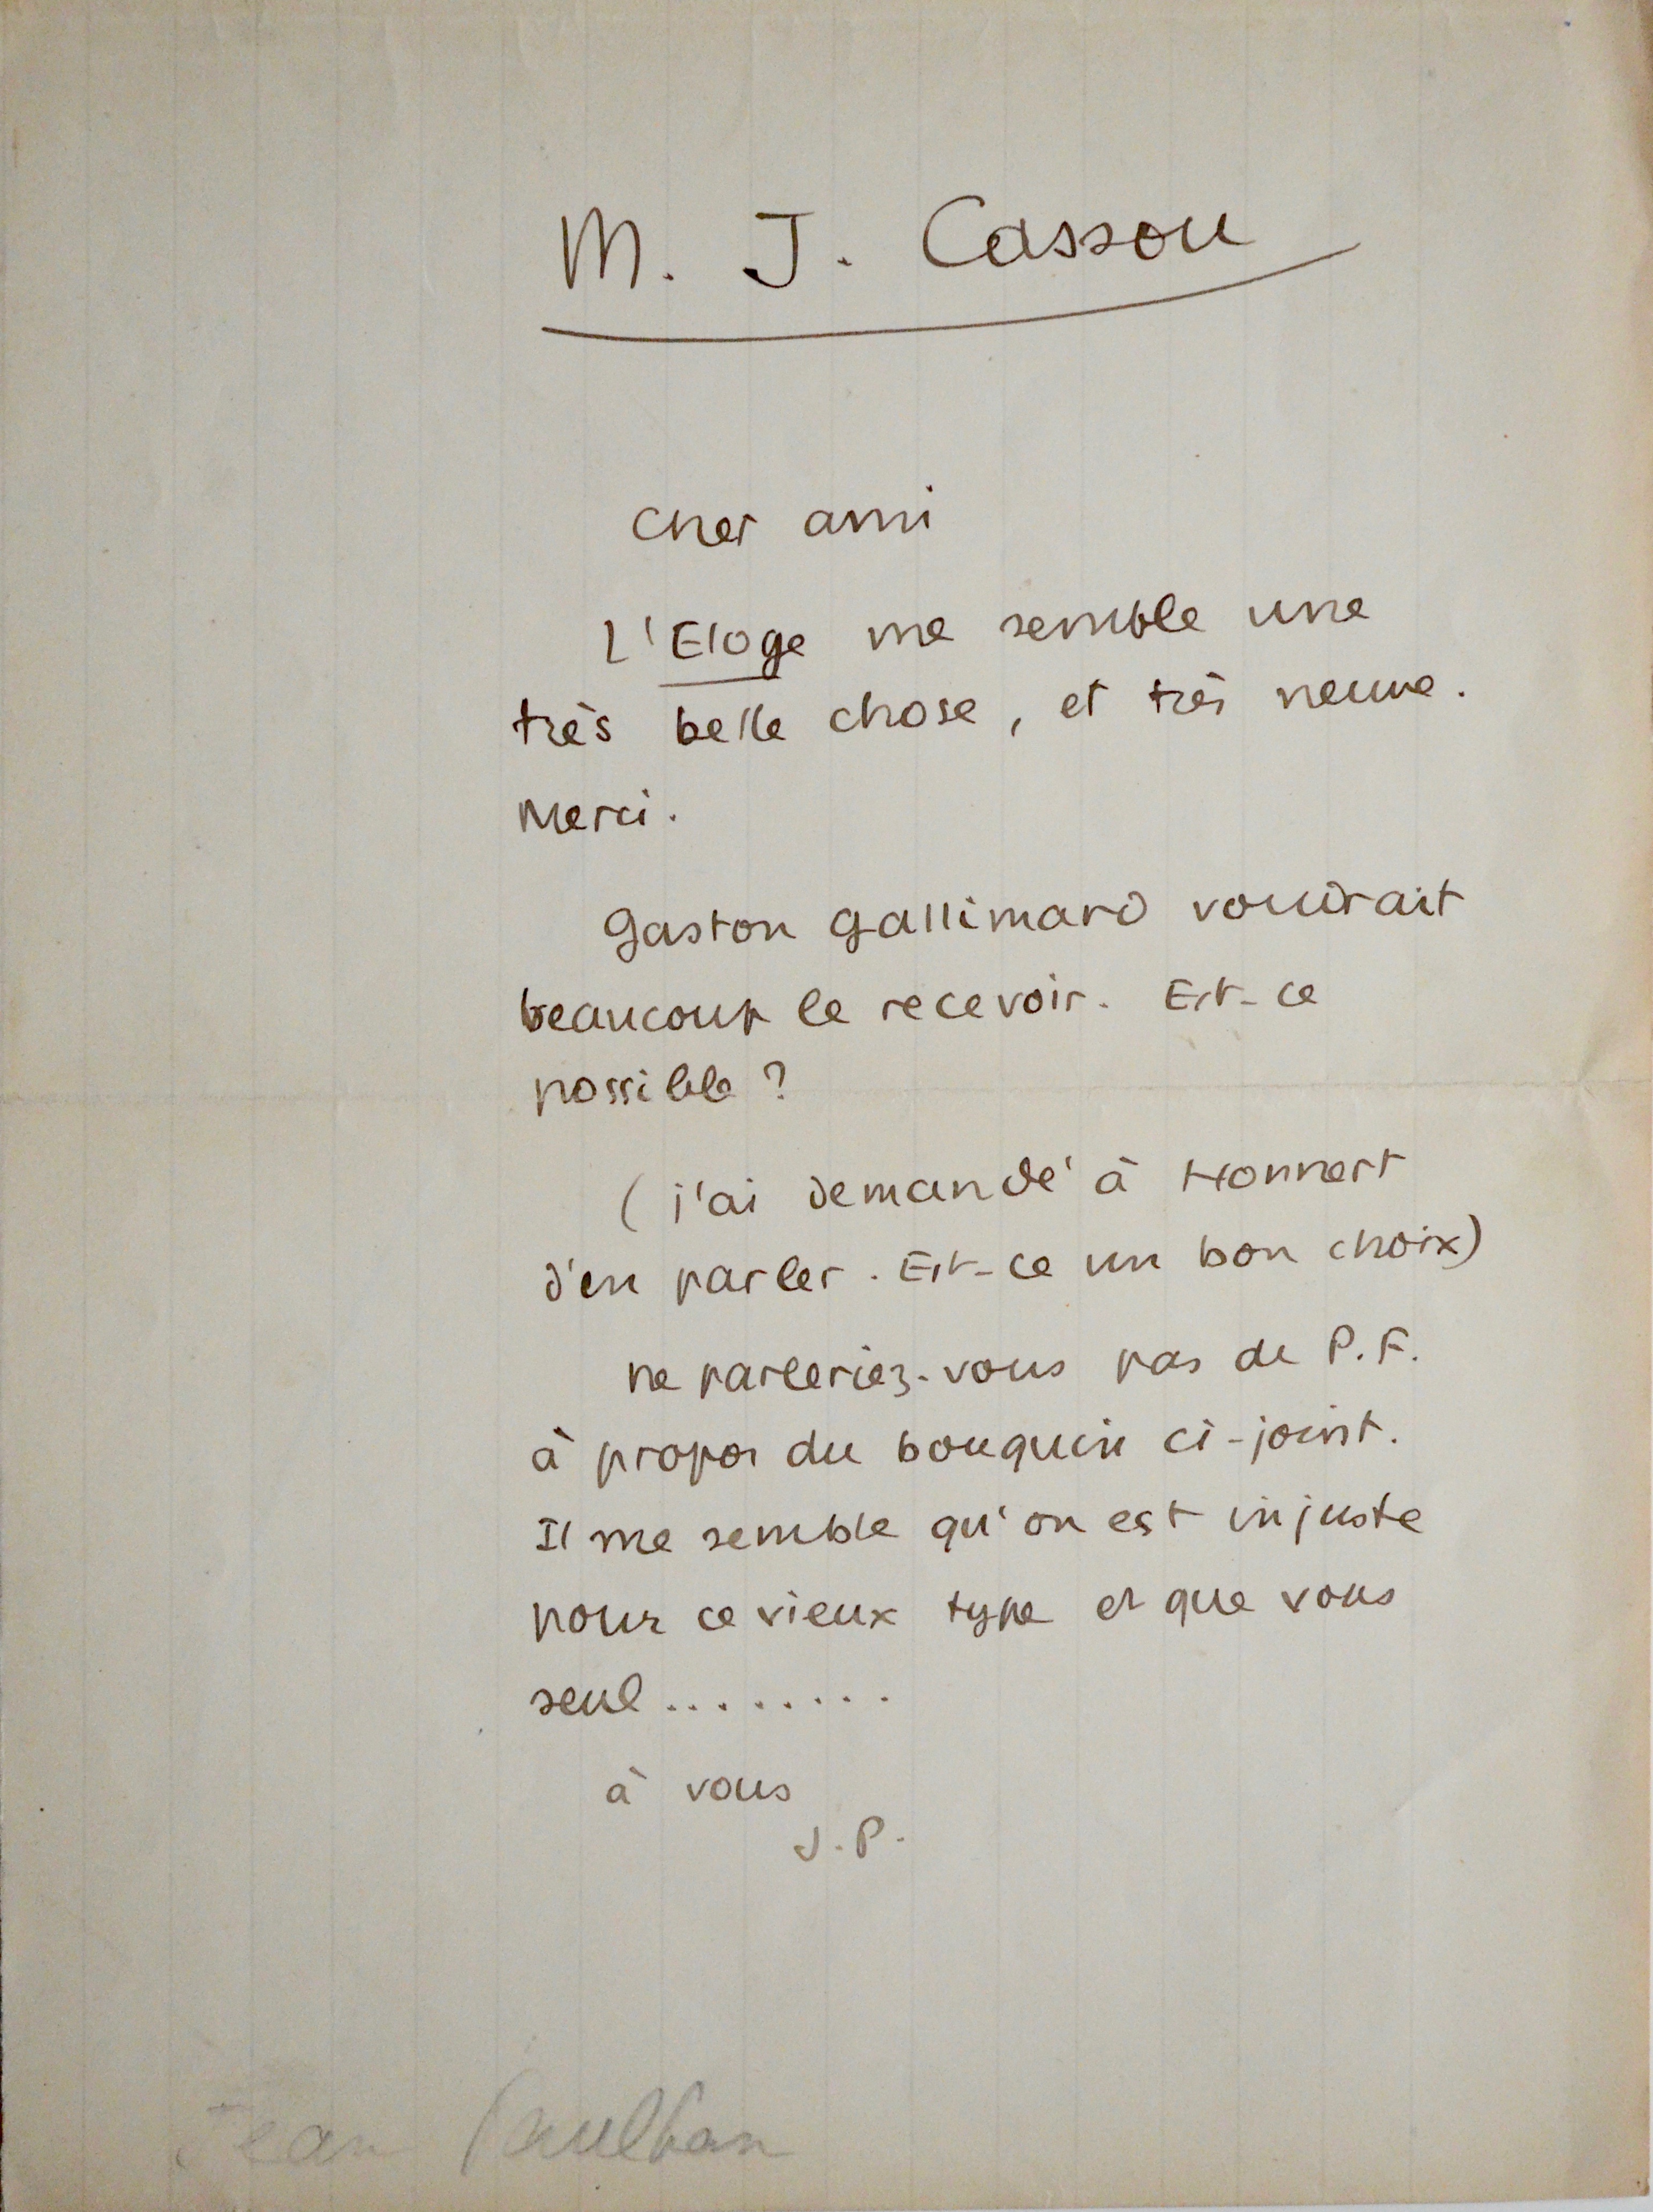 M. J. Cassou
Cher ami
L'Eloge me semble une
très belle chose, et très neuve.
Merci.
Gaston Gallimard voudrait
beaucoup le recevoir. Est-ce
possible ?
(j'ai demandé à Honnert
d'en parler. Est-ce un bon choix)
ne parleriez-vous pas de P.F.
à propos du bouquin ci-joint.
Il me semble qu'on est injuste
pour ce vieux type et que vous
seul ........
à vous
J.P.
Jean Paulhan